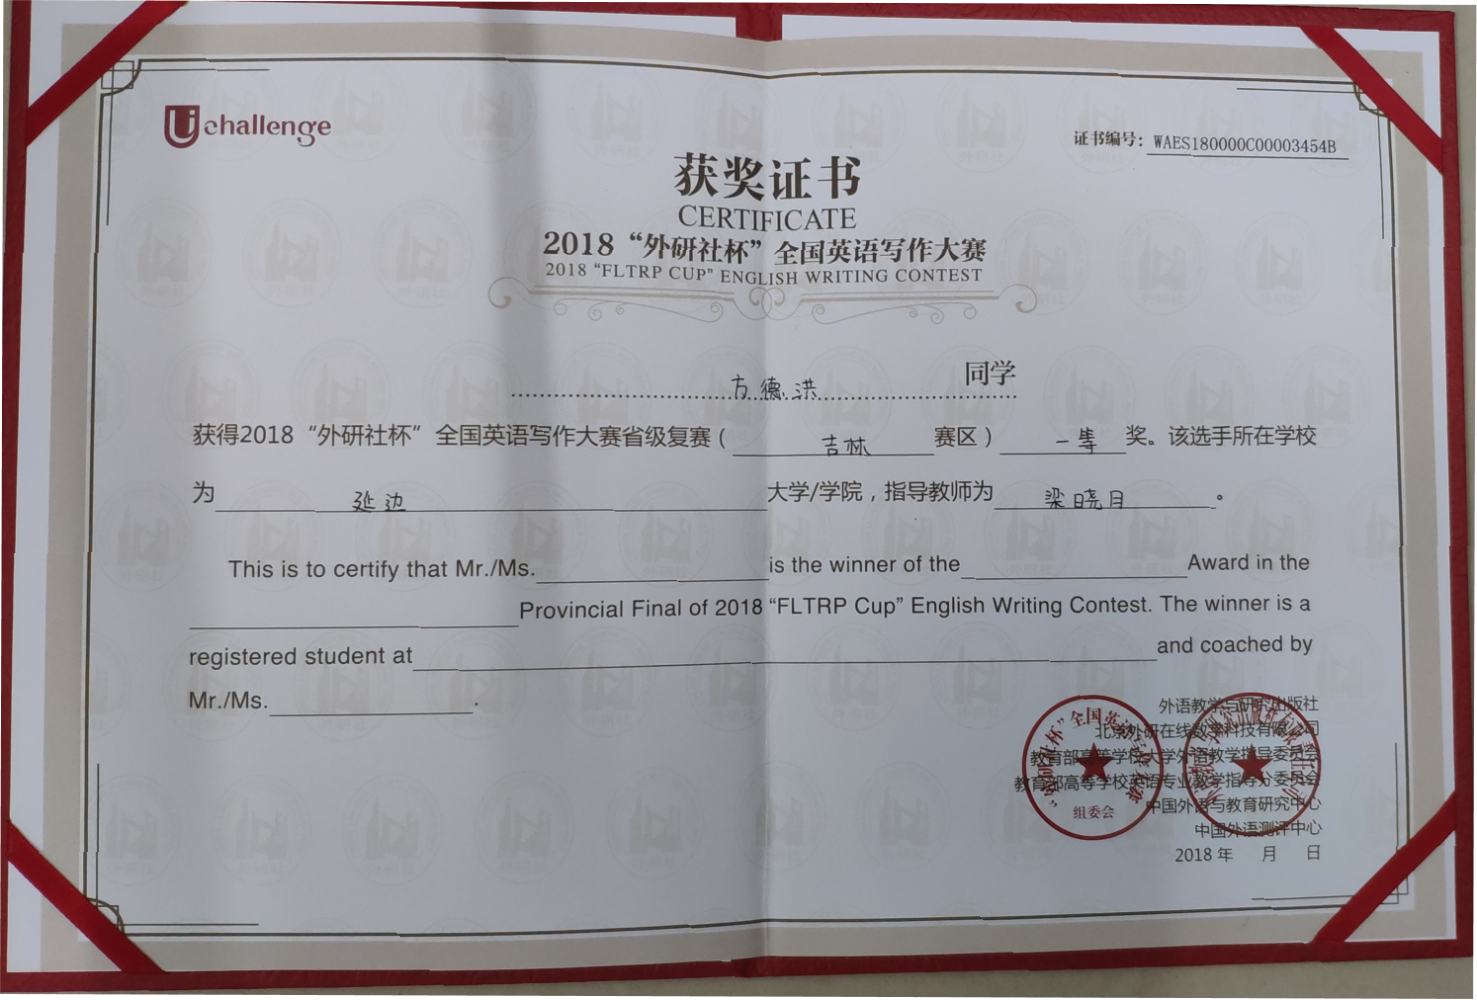 Uchallenge
证书编号：WAES180000C00003454B
获奖证书
CERTIFICATE
2018“外研社杯”全国英语写作大赛
2018 “FLTRP CUP” ENGLISH WRITING CONTEST
方德洪 同学
获得2018“外研社杯”全国英语写作大赛省级复赛（ 吉林 赛区） 一等 奖。该选手所在学校
为 延边 大学/学院，指导教师为 梁晓月 。
This is to certify that Mr./Ms. is the winner of the Award in the
Provincial Final of 2018 “FLTRP Cup” English Writing Contest. The winner is a
registered student at and coached by
Mr./Ms. .
外语教学与研究出版社
北京外研在线数字科技有限公司
教育部高等学校大学外语教学指导委员会
教育部高等学校英语专业教学指导分委员会
中国外语与教育研究中心
中国外语测评中心
2018 年 月 日
组委会